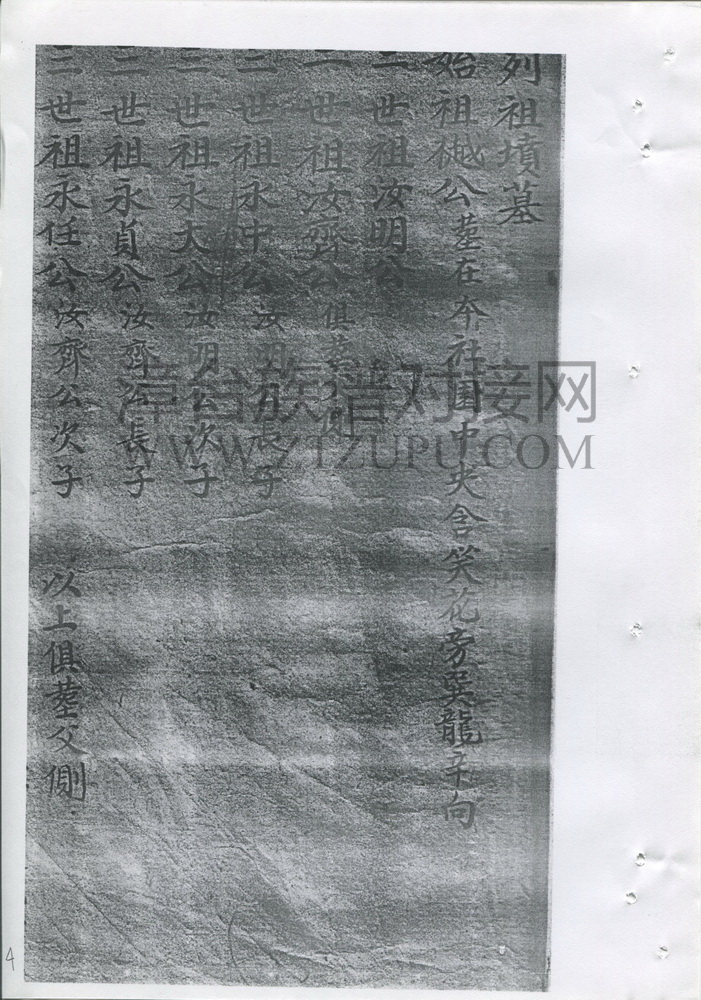 列祖墳墓
始祖樾公塟在夲社園中央含笑花旁巽龍辛向
二世祖汝明公
二世祖汝齊公俱塟父側
三世祖永中公汝明公長子
三世祖永大公汝明公次子
三世祖永貞公汝齊公長子
三世祖永任公汝齊公次子 以上俱塟父側
漳台族谱对接网
WWW.ZTZUPU.COM
4